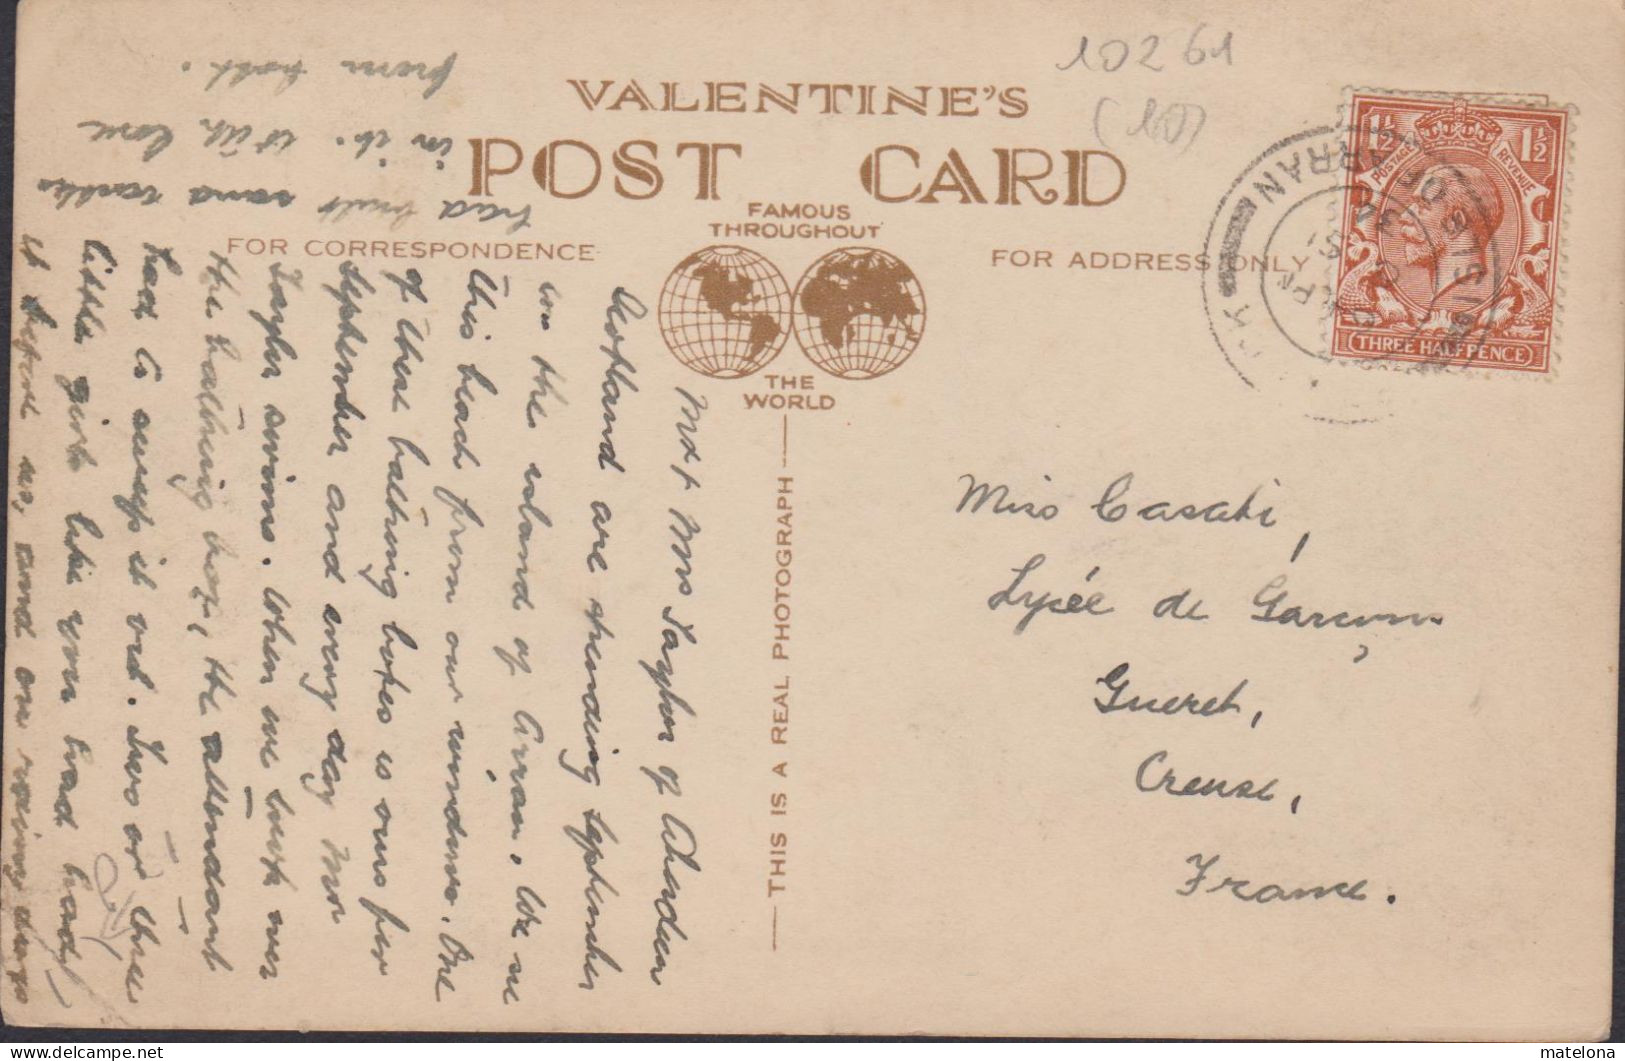 10261
(10)
VALENTINE'S
POST CARD
FAMOUS
THROUGHOUT
THE
WORLD
FOR CORRESPONDENCE
FOR ADDRESS ONLY
THIS IS A REAL PHOTOGRAPH
1½ 1½
POSTAGE REVENUE
THREE HALFPENCE
ARRAN
Mr & Mrs Taylor of Aberdeen
Scotland are spending September
on the island of Arran. We see
this beach from our windows. One
of these bathing boxes is ours for
September and every day Mr
Taylor swims. When we took over
the bathing box, the attendant
had to sweep it out. Two or three
little girls like you had hardly
it before us, and on rainy days
had built sand castles
in it. With love
from both.
Miss Casati,
Lysée de Garcons,
Gueret,
Creuse,
France.
matelona